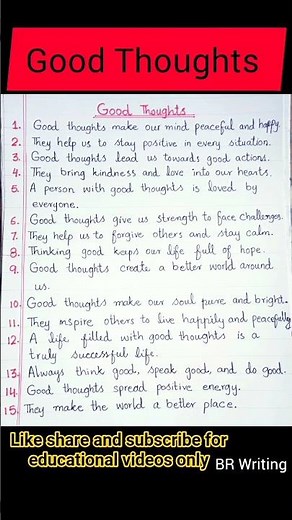 Good Thoughts
Good Thoughts
1. Good thoughts make our mind peaceful and happy.
2. They help us to stay positive in every situation.
3. Good thoughts lead us towards good actions.
4. They bring kindness and love into our hearts.
5. A person with good thoughts is loved by
everyone.
6. Good thoughts give us strength to face challenges.
7. They help us to forgive others and stay calm.
8. Thinking good keeps our life full of hope.
9. Good thoughts create a better world around
us.
10. Good thoughts make our soul pure and bright.
11. They inspire others to live happily and peacefully.
12. A life filled with good thoughts is a
truly successful life.
13. Always think good, speak good, and do good.
14. Good thoughts spread positive energy.
15. They make the world a better place.
Like share and subscribe for
educational videos only BR Writing